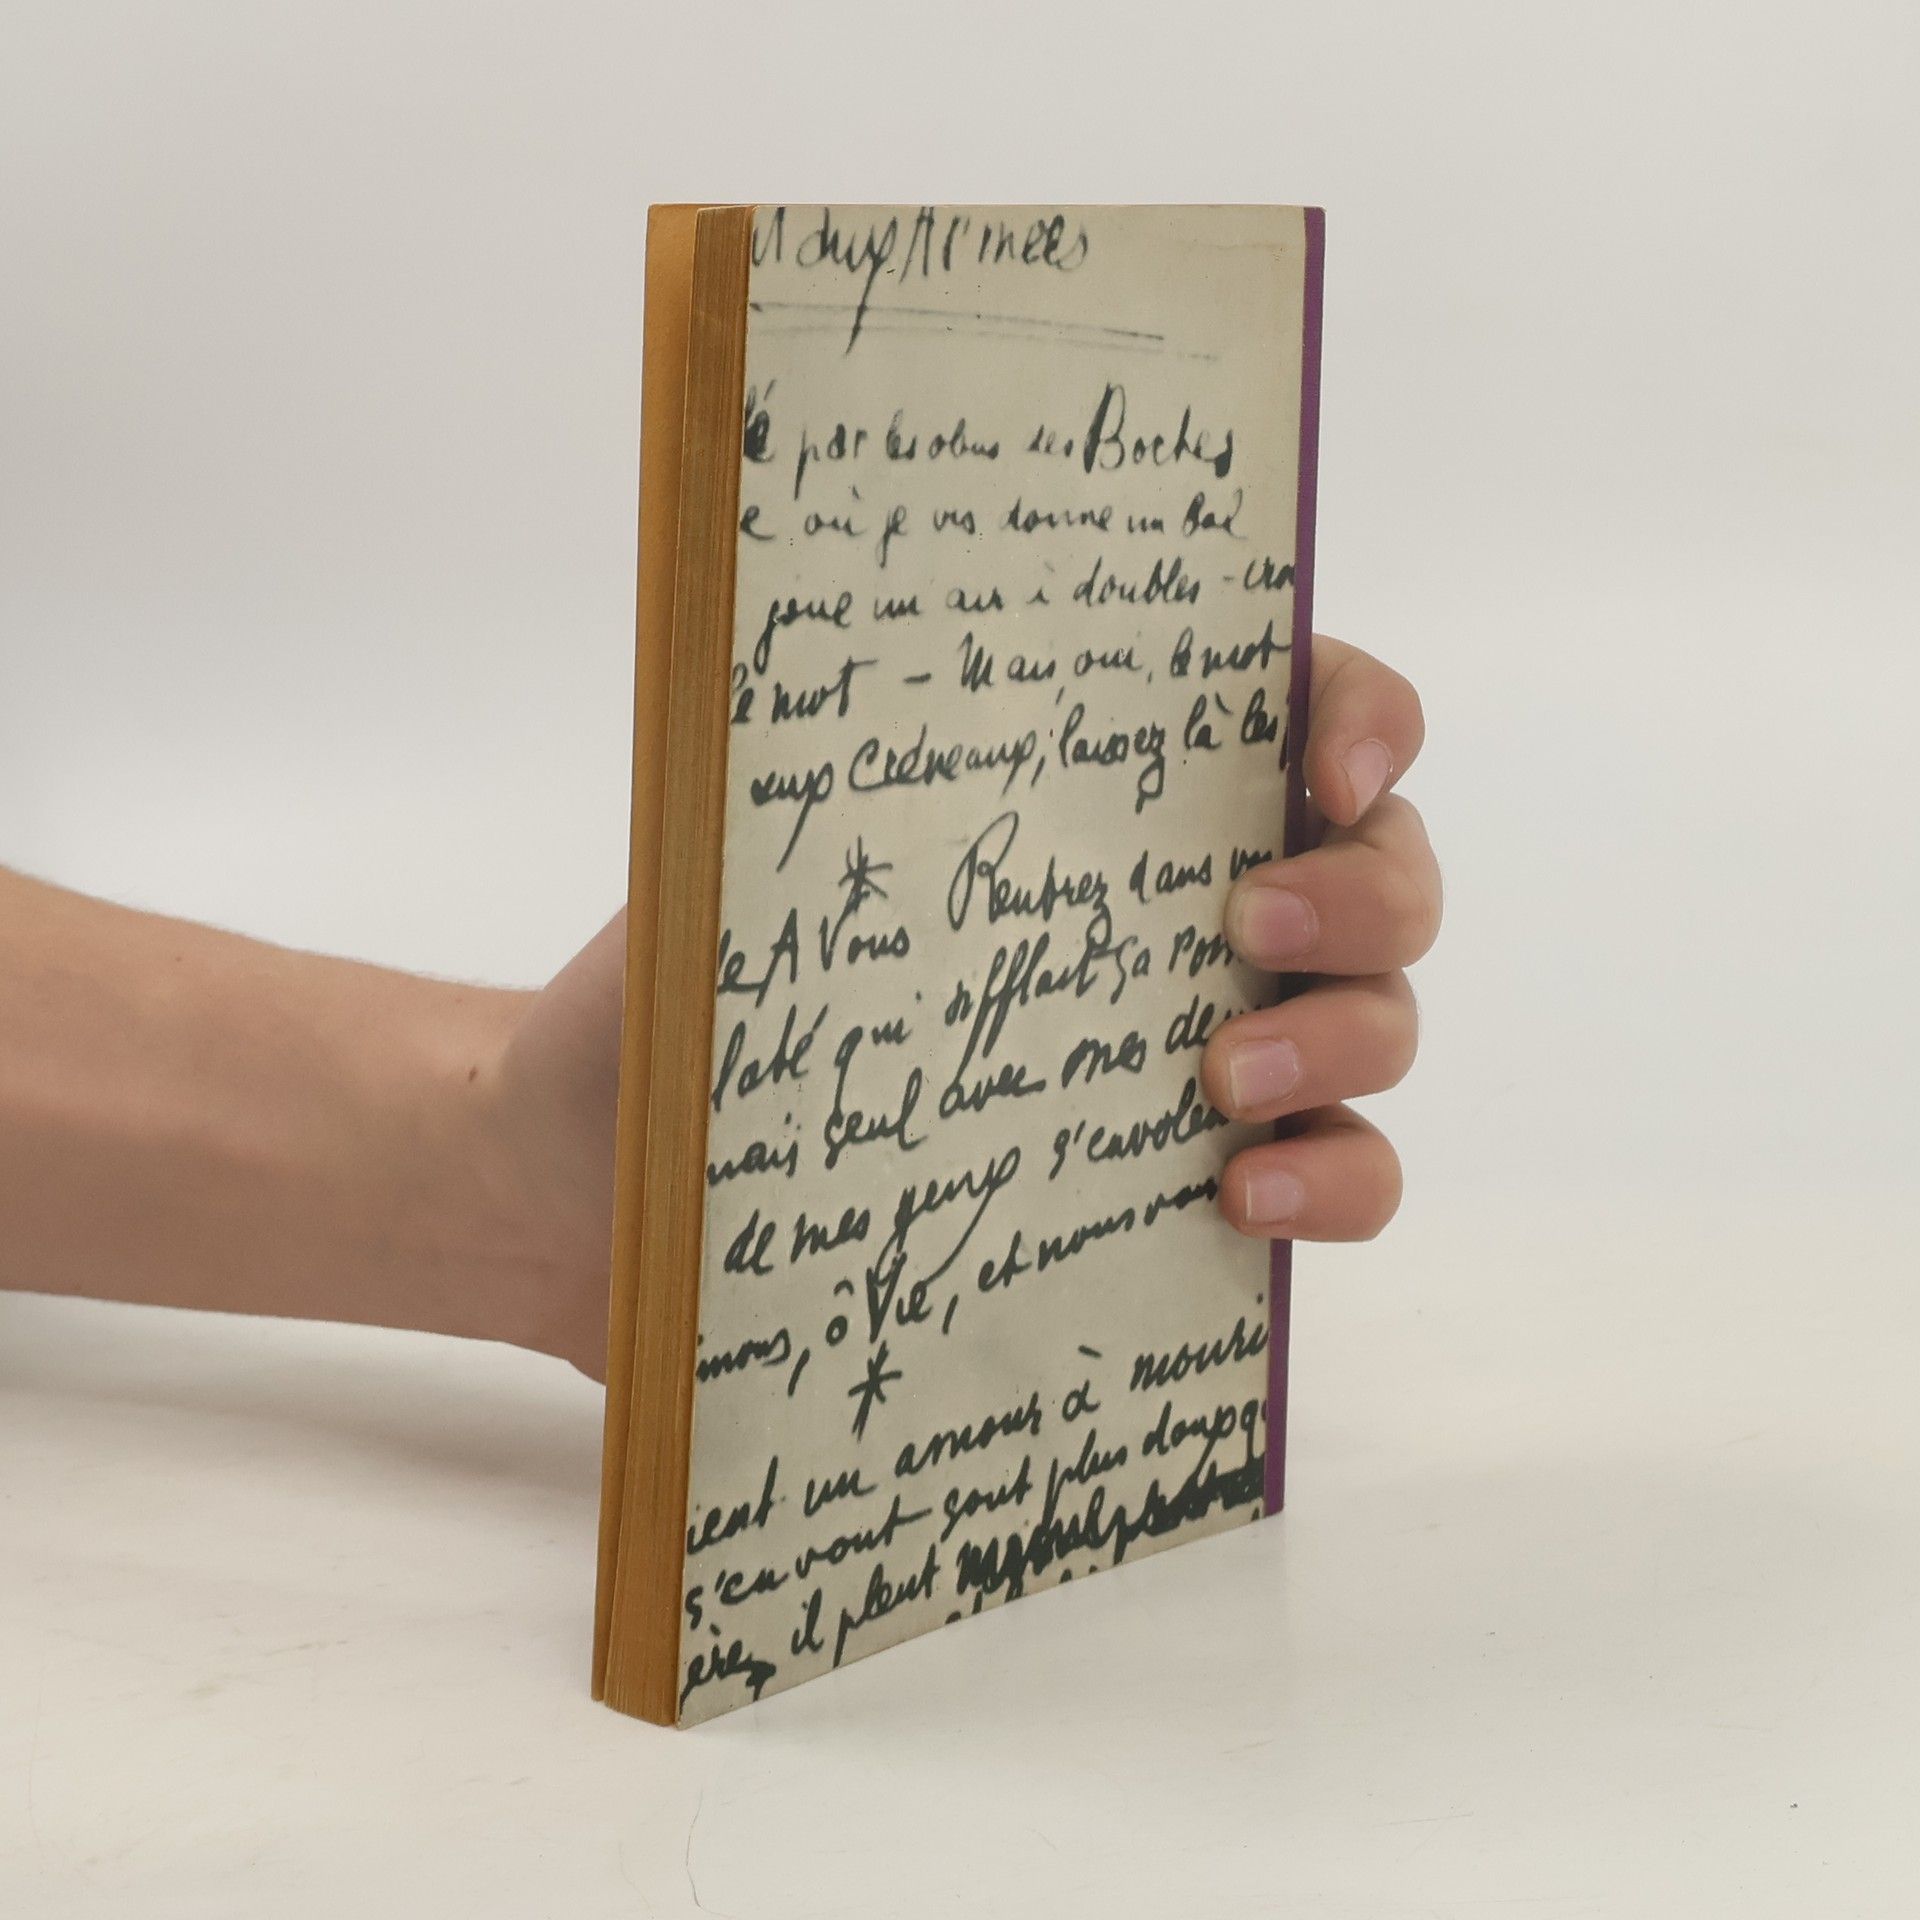 aux Armées
par les obus des Boches
où je vis donne un bal
joue un air à doubles - cro
le mot - Mais oui, le mot
aux Créneaux, laissez là les
*
le A Vous Rentrez dans vos
laté qui sifflait ça
mais seul avec mes de
de mes yeux s'envolen
imons, ô Vie, et nous
*
ient un amour à mouri
s'en vont sont plus doux q
il pleut